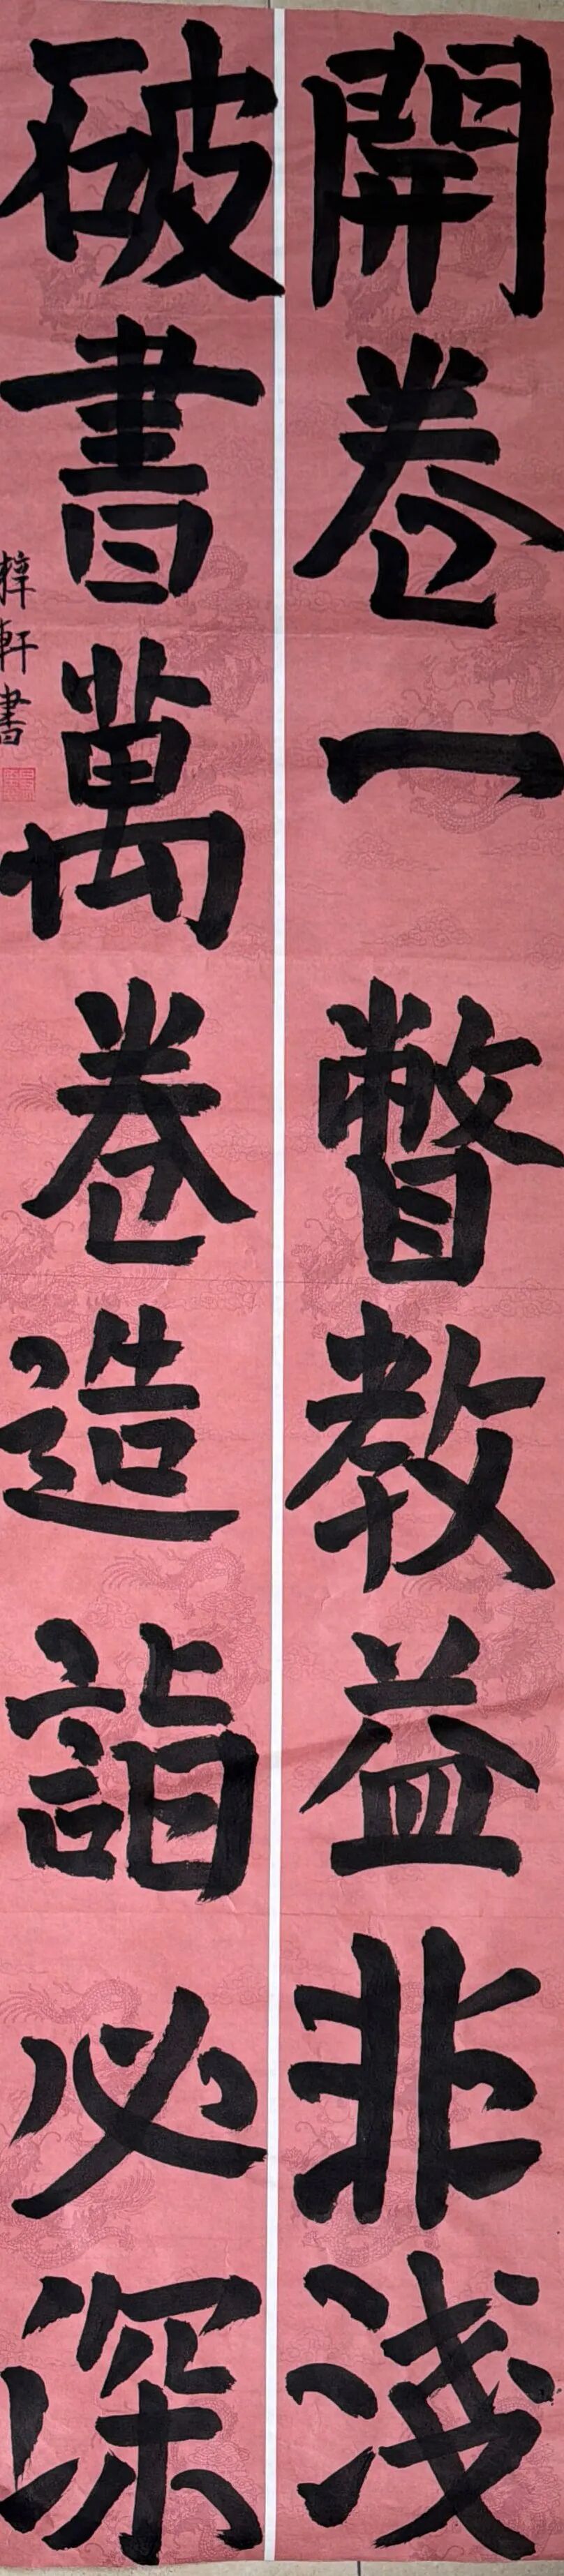 開卷一瞥教益非淺
破書萬卷造詣必深
梓軒書